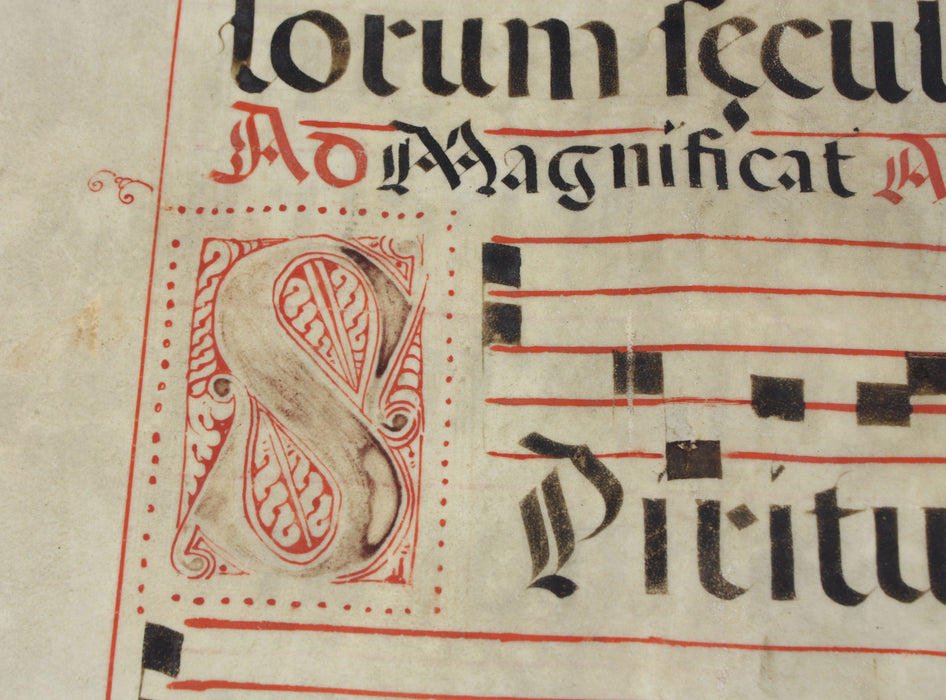 lorum sęcul
Ad Magnificat A
SPiritu